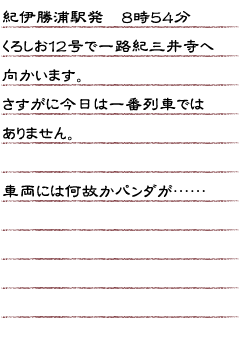 紀伊勝浦駅発　8時54分
くろしお12号で一路紀三井寺へ
向かいます。
さすがに今日は一番列車では
ありません。
車両には何故かパンダが……